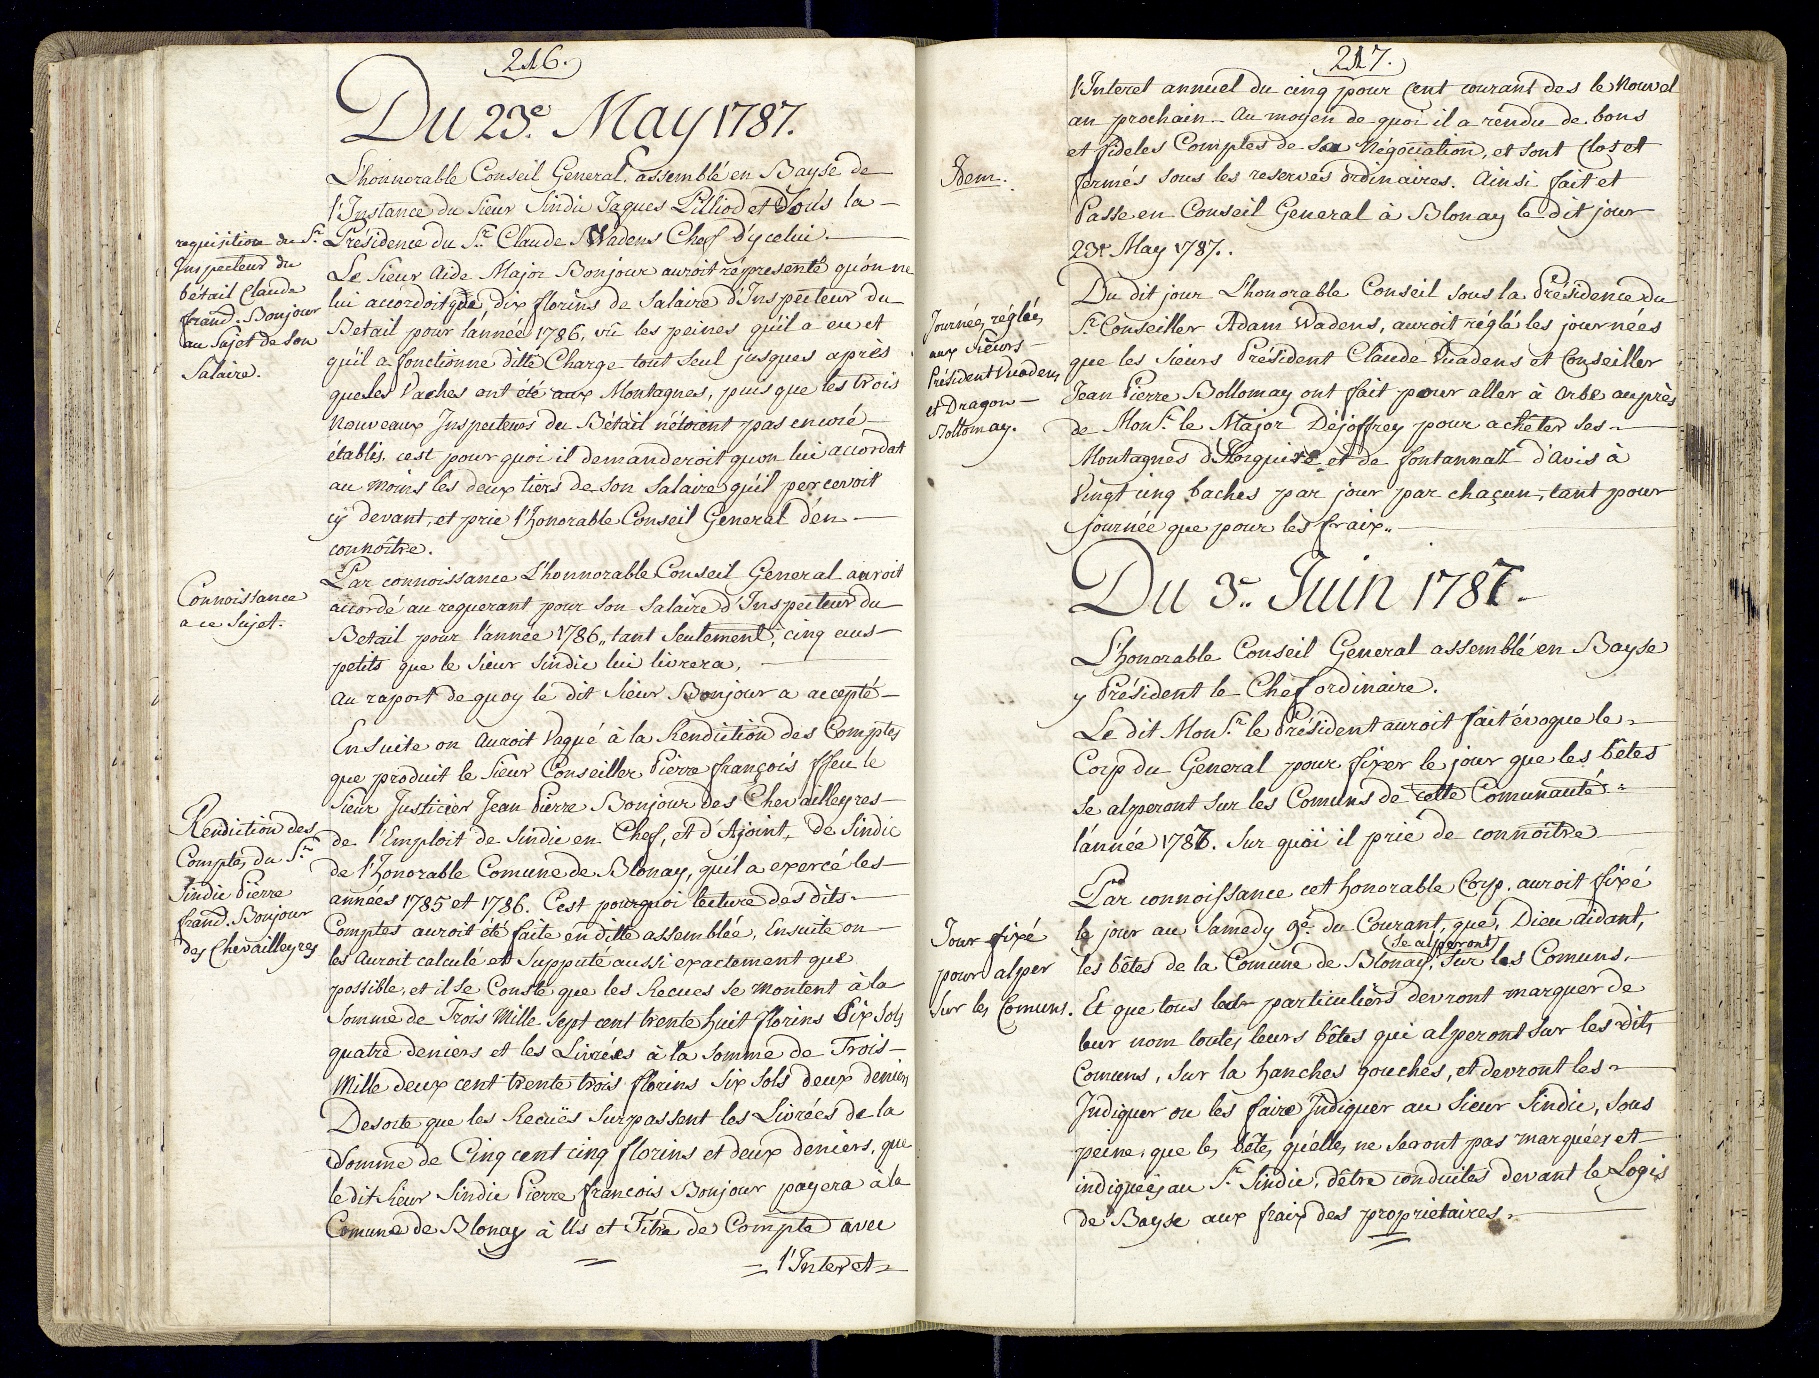 216.
Du 23e. May 1787.
L'honnorable Conseil General assemblé en Bayse de
l'Instance du Sieur Sindic Jaques Pilliod et Sous la
requisition du Sr.
Inspecteur du
bétail Claude
frand. Bonjour
au Sujet de Son
Salaire.
Présidence du Sr. Claude Wadens Chef d'ycelui.
Le Sieur Aide Major Bonjour auroit répresenté qu'on ne
lui accordoit que dix florins de Salaire d'Inspecteur du
Betail pour l'année 1786, vû les peines qu'il a eu et
qu'il a fonctionne ditte Charge tout Seul jusques après
que les Vaches ont été aux Montagnes, puis que les trois
Nouveaux Inspecteurs du Bétail n'étoient pas encoré
établis. cest pour quoi il demanderoit quon lui accordat
au moins les deux tiers de Son Salaire qu'il percevoit
cÿ devant, et prie l'honorable Conseil General d'en
connoître.
Connoissance
a ce Sujet.
Par connoissance L'honnorable Conseil General auroit
accordé au requerant pour Son Salaire d'Inspecteur du
Betail pour l'année 1786,, tant Seulement, cinq ecus
petits que le Sieur Sindic lui livrera,
Au raport de quoy le dit Sieur Bonjour a accepté
Ensuite on Auroit Vaqué à la Rendition des Comptes
que produit le Sieur Conseiller Pierre françois ffeu le
Sieur Justicier Jean Pierre Bonjour des Chevailleyres
Rendiction des
Comptes du Sr.
Sindic Pierre
frand. Bonjour
des Chevailleyres
de l'Emploit de Sindic en Chef, et d'Ajoint, de Sindic
de l'honorable Comune de Blonay, qu'il a exercé les
années 1785 et 1786. C'est pourquoi lecture des dits
Comptes auroit été faite en ditte assemblée, Ensuite on
les Auroit calculé et Supputé aussi exactement que
possible, et il Se Conste que les Recues Se montent à la
Somme de Trois Mille Sept cent trente huit florins Six Sols
quatre deniers et les Livrées à la Somme de Trois
Mille deux cent trente trois florins Six Sols deux deniers
Desorte que les Recuës Surpassent les Livrées de la
Somme de Cinq cent cinq florins et deux deniers, que
le dit Sieur Sindic Pierre francois Bonjour payera à la
Comune de Blonay à Us et Titre de Compte avec
l'Interet
217.
l'Interet annuel du cinq pour Cent courant des le Nouvel
an prochain. Au moyen de quoi il a rendu de bons
et fideles Comptes de Sa Négotiation, et sont Clos et
Idem.
fermés sous les reservés ordinaires. Ainsi fait et
Passe en Conseil General à Blonay le dit jour
23e May 1787.
Du dit jour L'honorable Conseil sous la Présidence du
Journées réglées
aux Sieurs
Président Vuadens
et Dragon
Bottomay.
Sr. Conseiller Adam Wadens, auroit réglé les journées
que les Sieurs Président Claude Vuadens et Conseiller
Jean Pierre Bottomay ont fait pour aller à Orbe auprès
de Monsr. le Major Déjoffrey pour achêter Ses
Montagnes et de fontannaz d'Avis à
Vingt cinq baches par jour par chaçun, tant pour
journée que pour les fraix,,
Du 3e. Juin 1787.
L'honorable Conseil General assemblé en Bayse
y Président le Chef ordinaire.
Le dit Monsr. le Président auroit fait évoque le
Corp du General pour fixer le jour que les bêtes
Se alperont Sur les Comuns de cette Comunauté
l'année 1787. Sur quoi il prie de connoitre
Par connoissance cet honorable Corp. auroit fixé
Jour fixé
pour alper
Sur les Comuns.
le jour au Samedy 9e. du Courant, que, Dieu aidant,
les bêtes de la Comune de Blonay, Se alperont Sur les Comuns,
Et que tous particuliers devront marquer de
leur nom toutes leurs bêtes qui alperont Sur les dits
Comuns, Sur la hanches gouches, et devront les
Indiquer ou les faire Indiquer au Sieur Sindic, Sous
peine, que les bêtes qu'elles ne Seront pas marquées et
indiquées au Sr. Sindic, d'être conduites devant le Logis
de Bayse aux fraix des proprietaires.